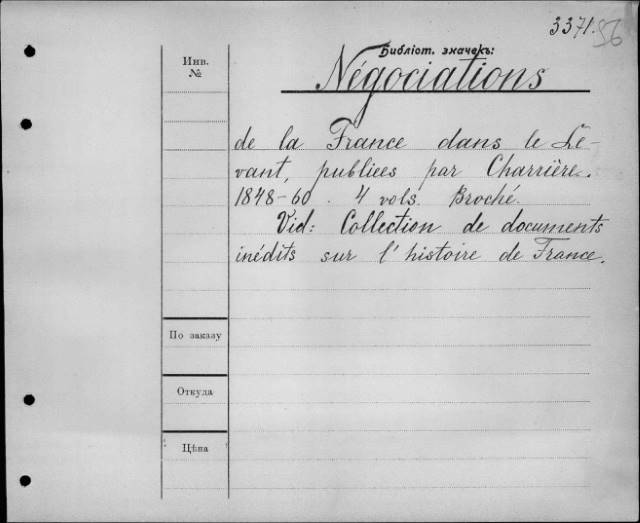 3371.56
Инв.
№
Библіот. значекъ:
Négociations
de la France dans le Le-
vant, publiées par Charrière.
1848-60. 4 vols. Broché.
Vid: Collection de documents
inédits sur l'histoire de France.
По заказу
Откуда
Цѣна